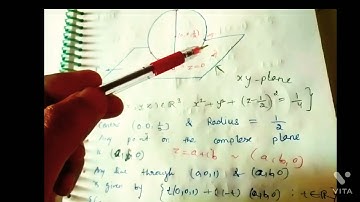 xy-plane
∈ ℝ³, x² + y² + (z - 1/2)² = 1/4 }
(0,0,1/2) & Radius = 1/2
Any point on the complex plane
(a,b,0) z = a+ib ~ (a,b,0)
Any line through (0,0,1) & (a,b,0)
is given by { t(0,0,1) + (1-t) (a,b,0) : t ∈ ℝ
Made With
VITA